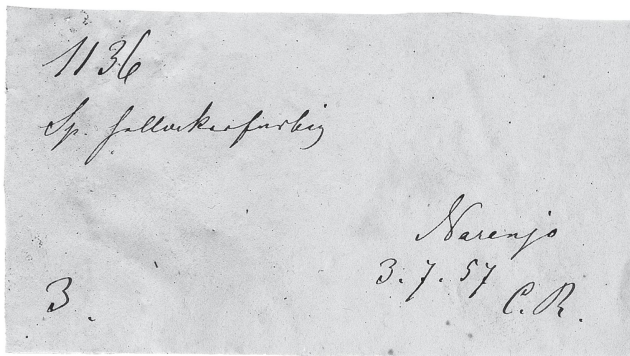 1136
Sp. hellockerfarbig
Narenjo
3.7.57
C.R.
3.